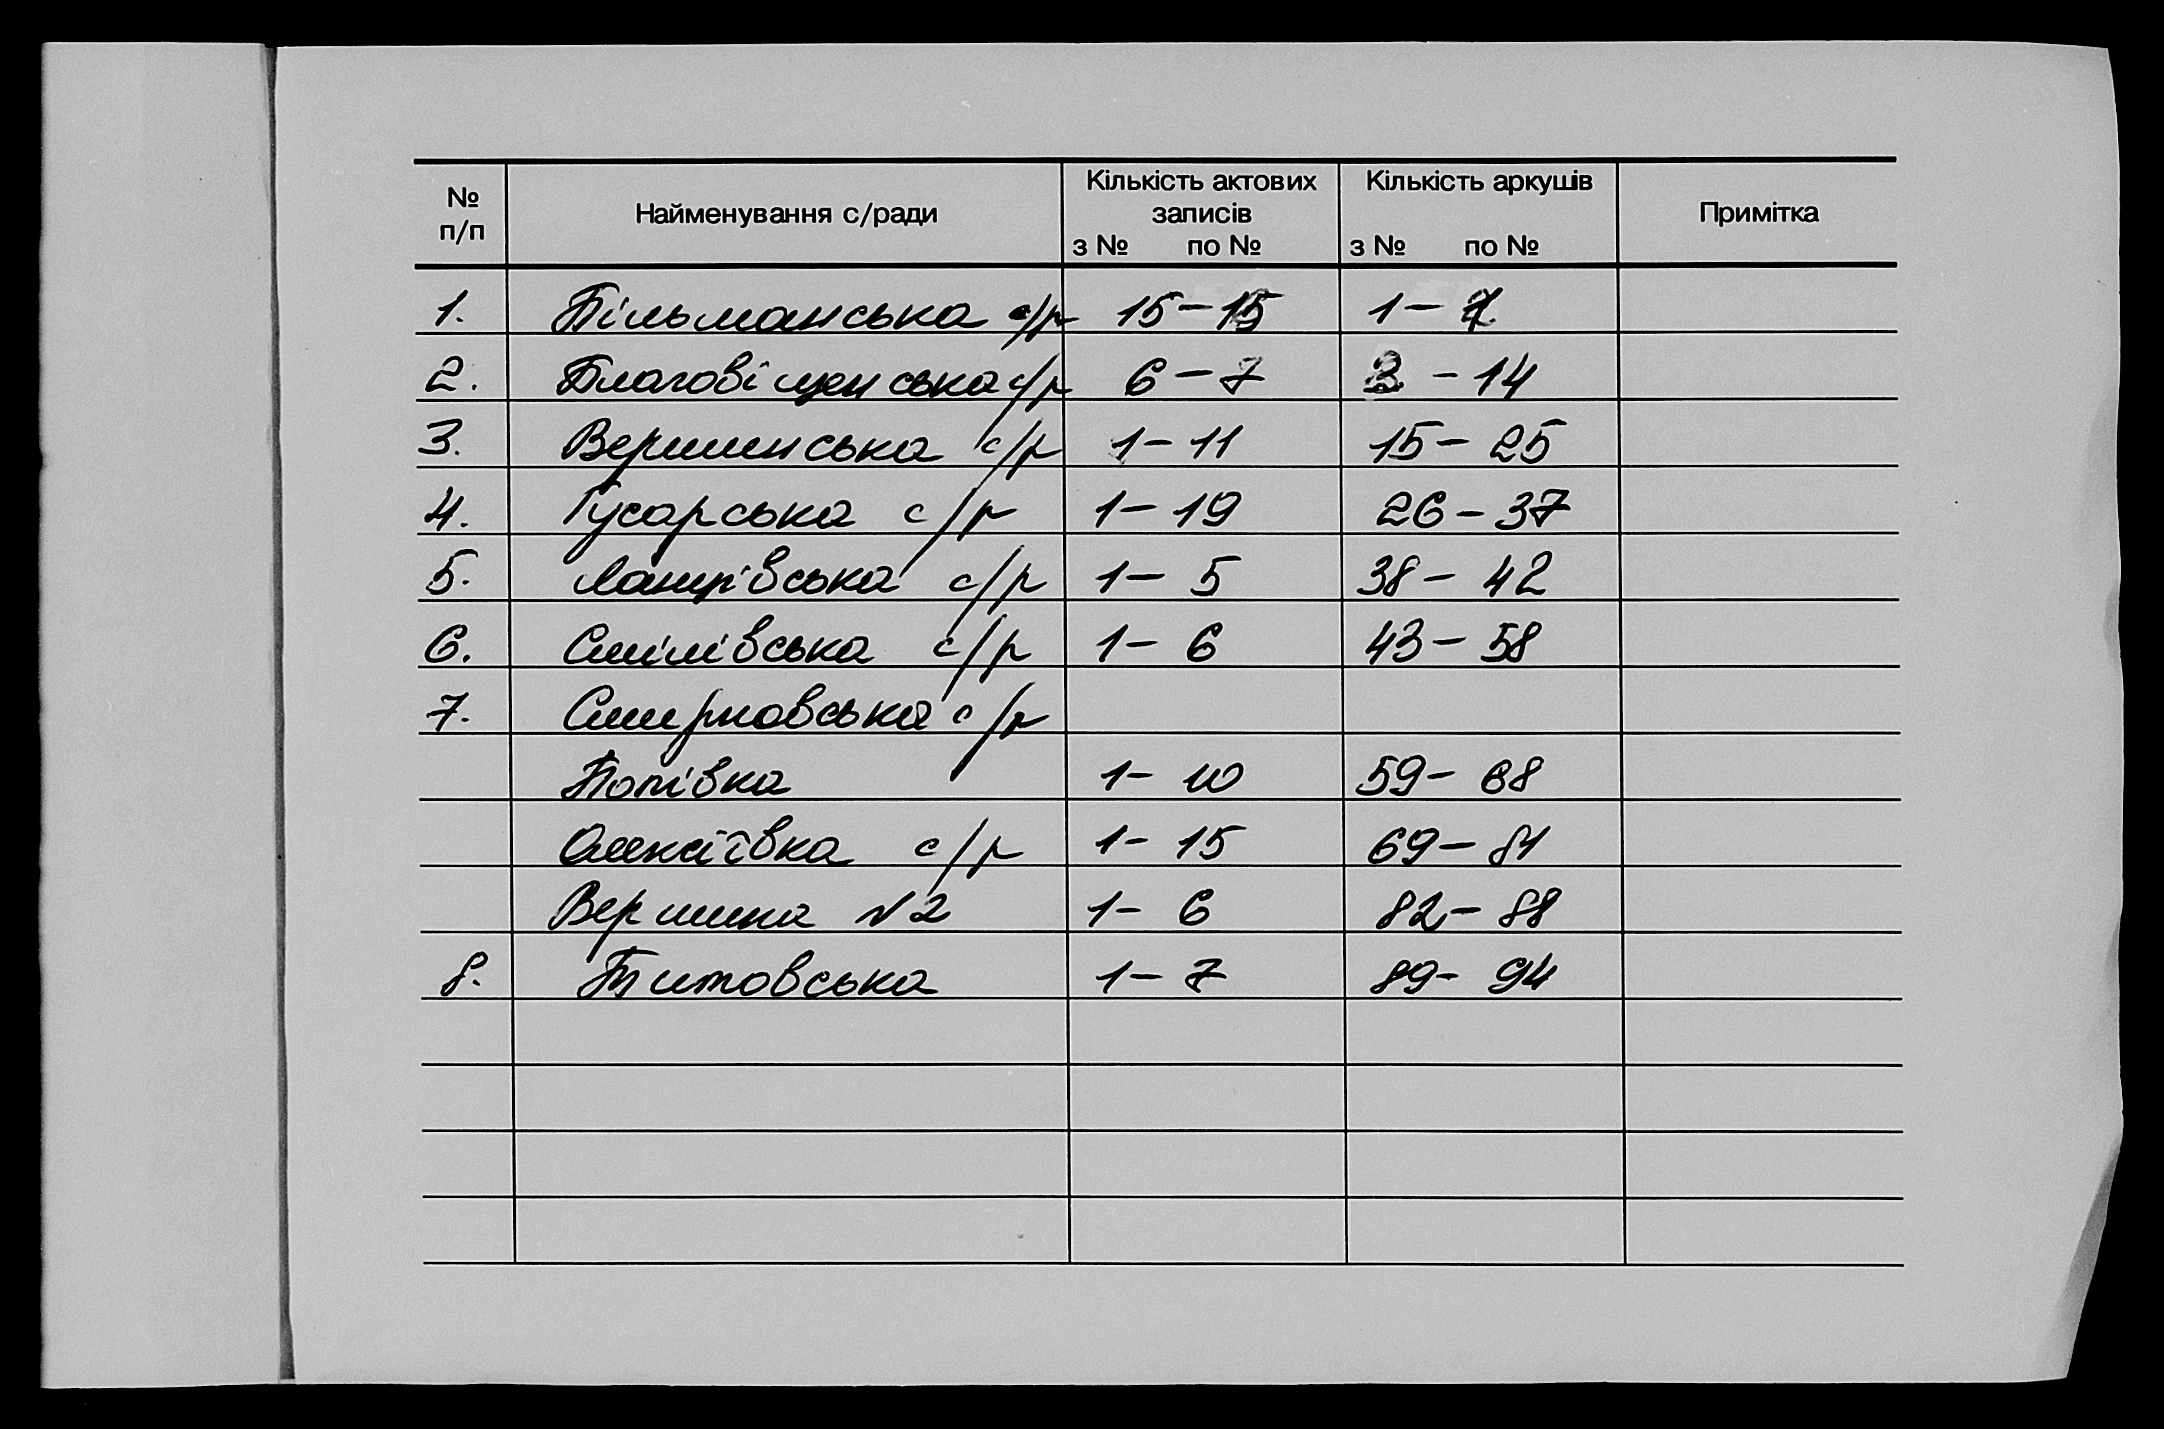 № п/п | Найменування с/ради | Кількість актових записів з № по № | Кількість аркушів з № по № | Примітка
1. Більманська с/р 15 – 15 1 –
2. Благовіщенська с/р 6 – 7 – 14
3. Вершинська с/р 1 – 11 15 – 25
4. Гусарська с/р 1 – 19 26 – 37
5. с/р 1 – 5 38 – 42
6. Смілівська с/р 1 – 6 43 – 58
7. Смирновська с/р
Попівка 1 – 10 59 – 68
Олексіївка с/р 1 – 15 69 – 81
Вершина №2 1 – 6 82 – 88
8. Титовська 1 – 7 89 – 94